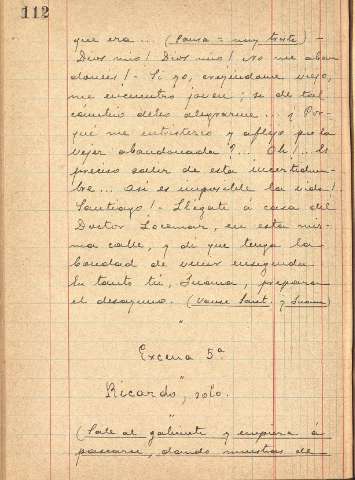 112
que era... (Pausa = muy triste) -
Dios mio! Dios mio! No me aban
dones! - Si yo, creyéndome viejo,
me encuentro joven; si de tal
cámbio debo alegrarme... ¿ Por-
qué me entristezco y aflijo por la
vejez abandonada?... Oh!... Es
preciso salir de esta incertidum-
bre... Asi es imposible la vida!.
Santiago! - Llégate á casa del
Doctor Locamar, en esta mis-
ma calle, y dí que tenga la
bondad de venir enseguida
En tanto tú, Juana, prepara
el desayuno. (Vanse Sant. y Juana)
"
Excena 5ª.
"
Ricardo, solo.
"
(Sale al gabinete y empieza á
pasearse, dando muestras de